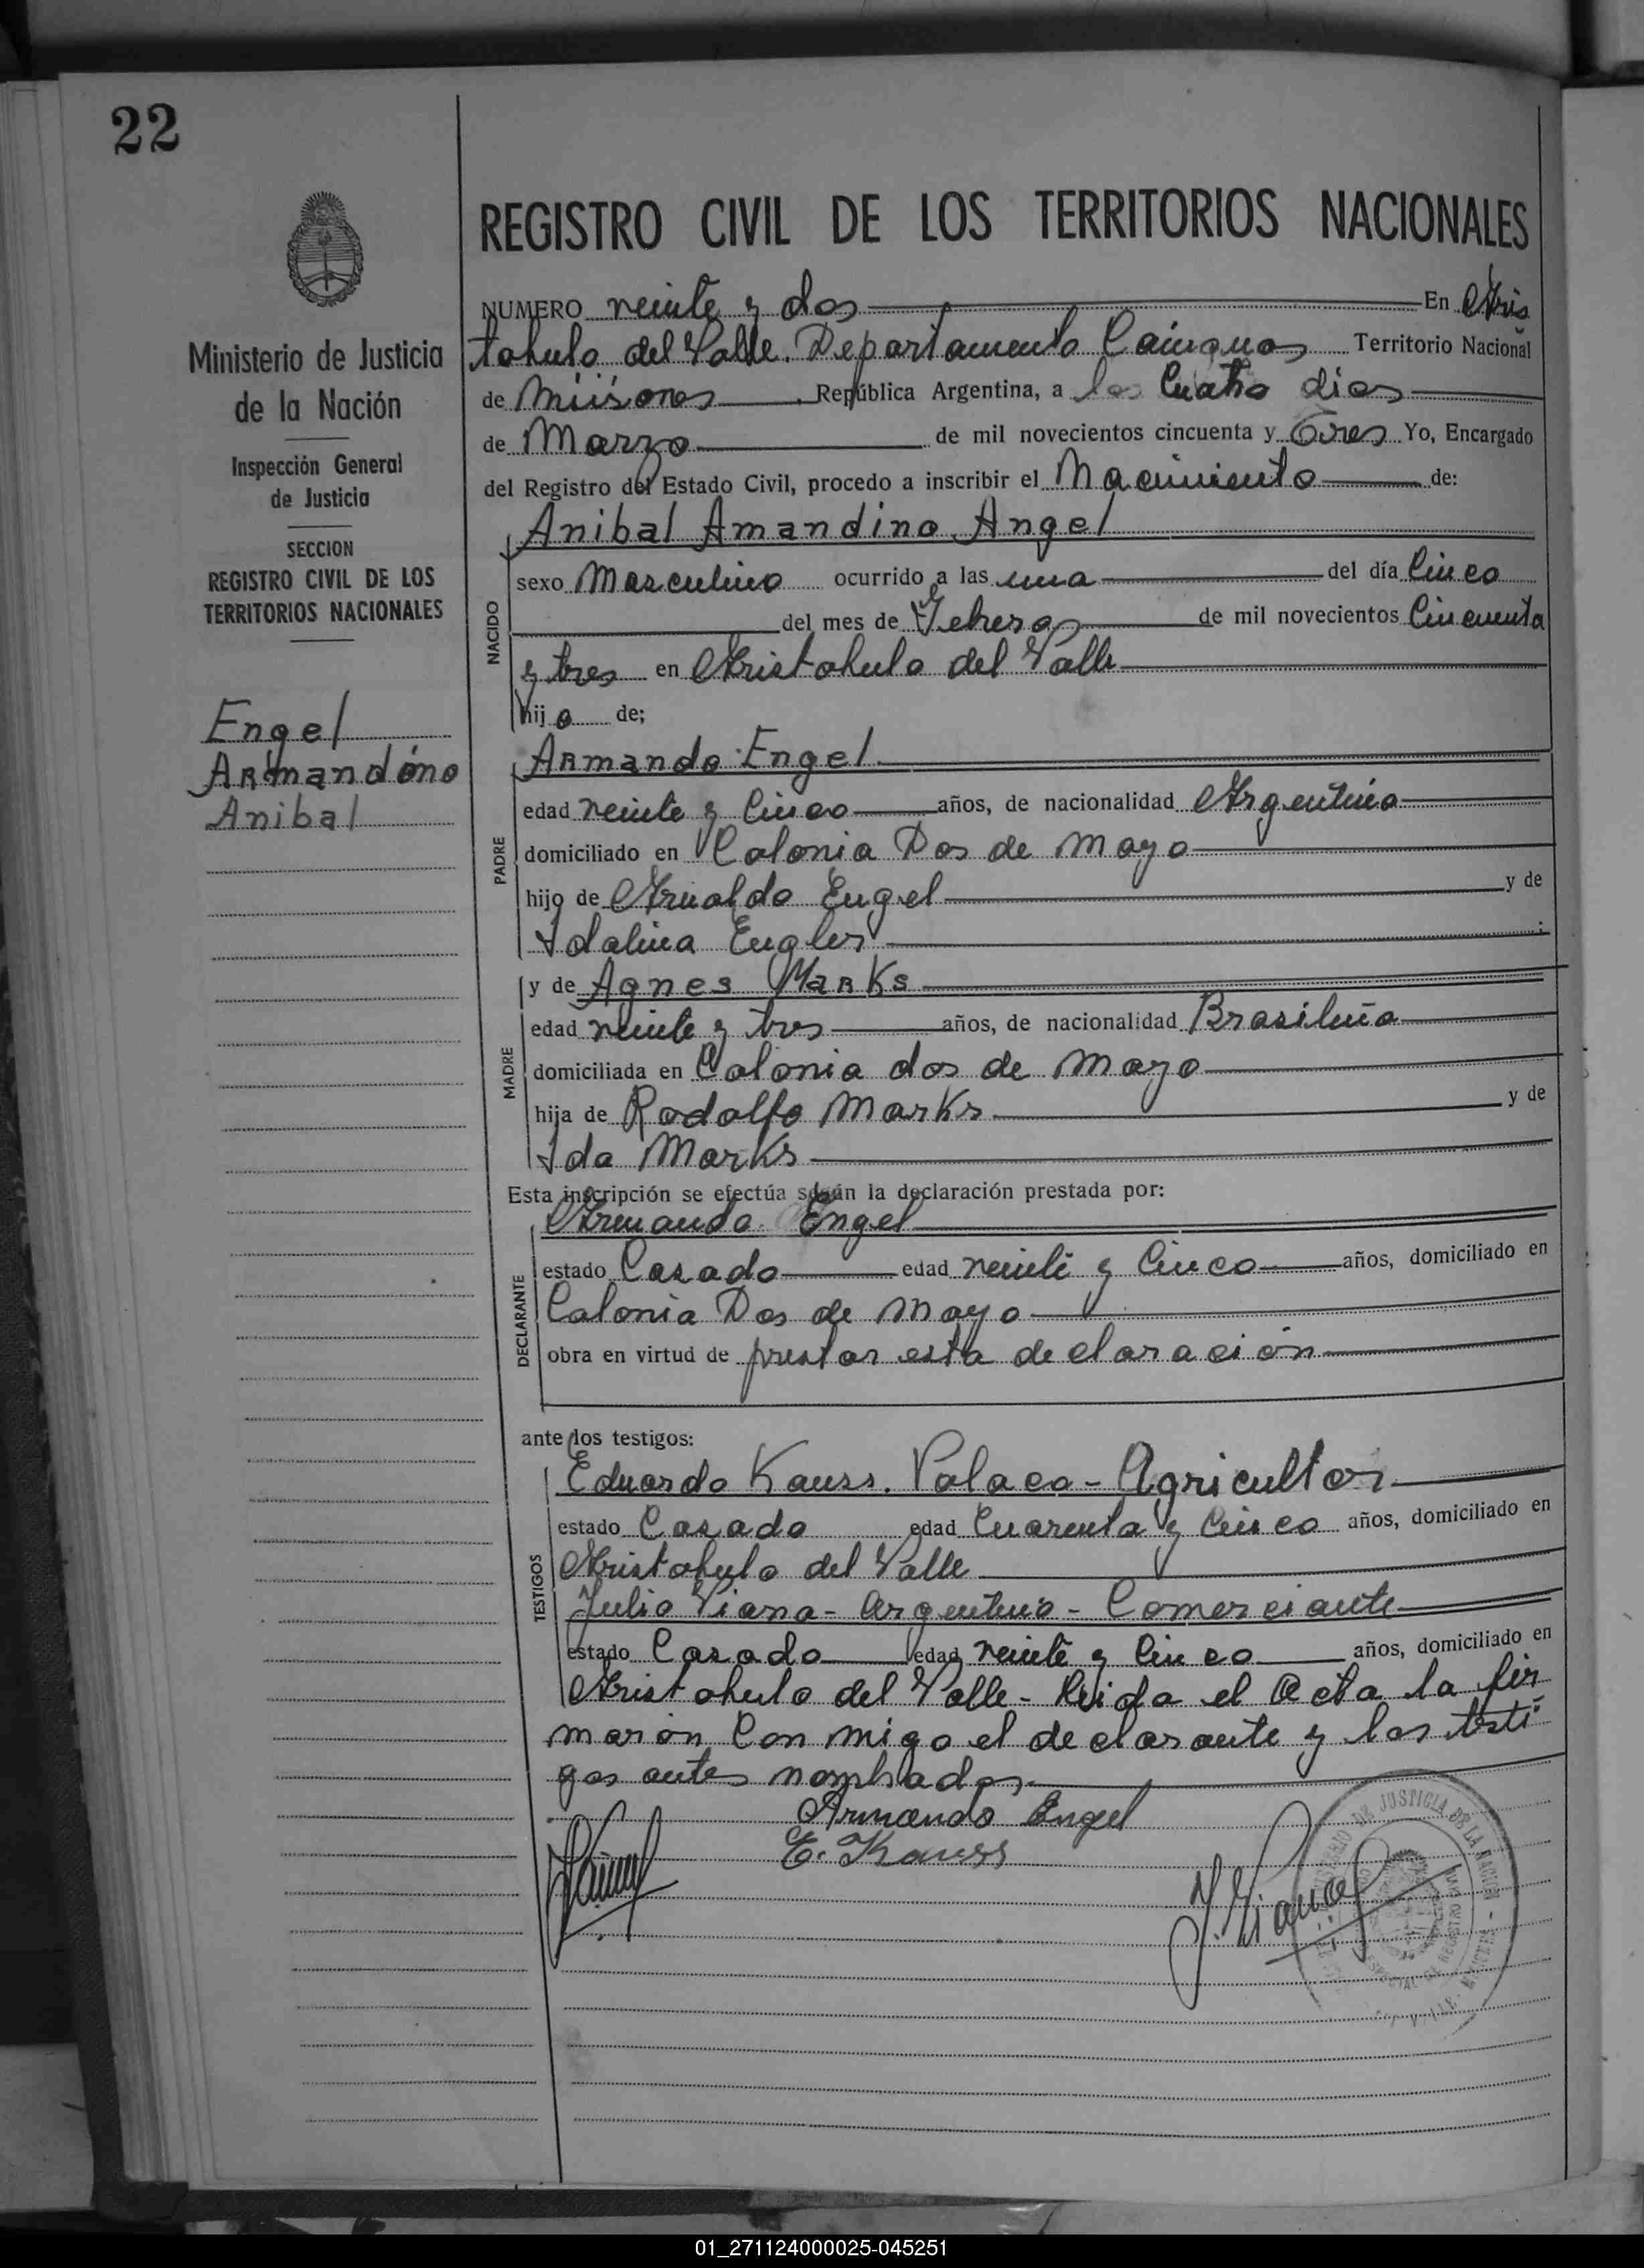 22
Ministerio de Justicia
de la Nación
Inspección General
de Justicia
SECCION
REGISTRO CIVIL DE LOS
TERRITORIOS NACIONALES
Engel
Armandino
Anibal
REGISTRO CIVIL DE LOS TERRITORIOS NACIONALES
NUMERO veinte y dos En Aris
tobulo del Valle. Departamento Cainguas Territorio Nacional
de Misiones República Argentina, a los Cuatro dias
de Marzo de mil novecientos cincuenta y Tres Yo, Encargado
del Registro del Estado Civil, procedo a inscribir el Nacimiento de:
NACIDO
Anibal Amandino Angel
sexo Masculino ocurrido a las una del día Cinco
del mes de Febrero de mil novecientos Cincuenta
y tres en Aristobulo del Valle
hijo de;
PADRE
Armando Engel
edad veinte y Cinco años, de nacionalidad Argentino
domiciliado en Colonia Dos de Mayo
hijo de Arnoldo Engel y de
Idalina Engler
MADRE
y de Agnes Marks
edad veinte y tres años, de nacionalidad Brasileña
domiciliada en Colonia dos de Mayo
hija de Rodolfo Marks y de
Ida Marks
Esta inscripción se efectúa según la declaración prestada por:
DECLARANTE
Armando Engel
estado Casado edad veinte y Cinco años, domiciliado en
Colonia Dos de Mayo
obra en virtud de prestar esta declaración
ante los testigos:
TESTIGOS
Eduardo Kauss. Polaco - Agricultor
estado Casado edad Cuarenta y Cinco años, domiciliado en
Aristobulo del Valle
Julio Viana - Argentino - Comerciante
estado Casado edad veinte y Cinco años, domiciliado en
Aristobulo del Valle - Leida el Acta la fir
maron Con migo el declarante y los testi
gos antes nombrados.
Armando Engel
E. Kauss
J. Viana
MINISTERIO DE JUSTICIA DE LA NACION - MISIONES
01_271124000025-045251